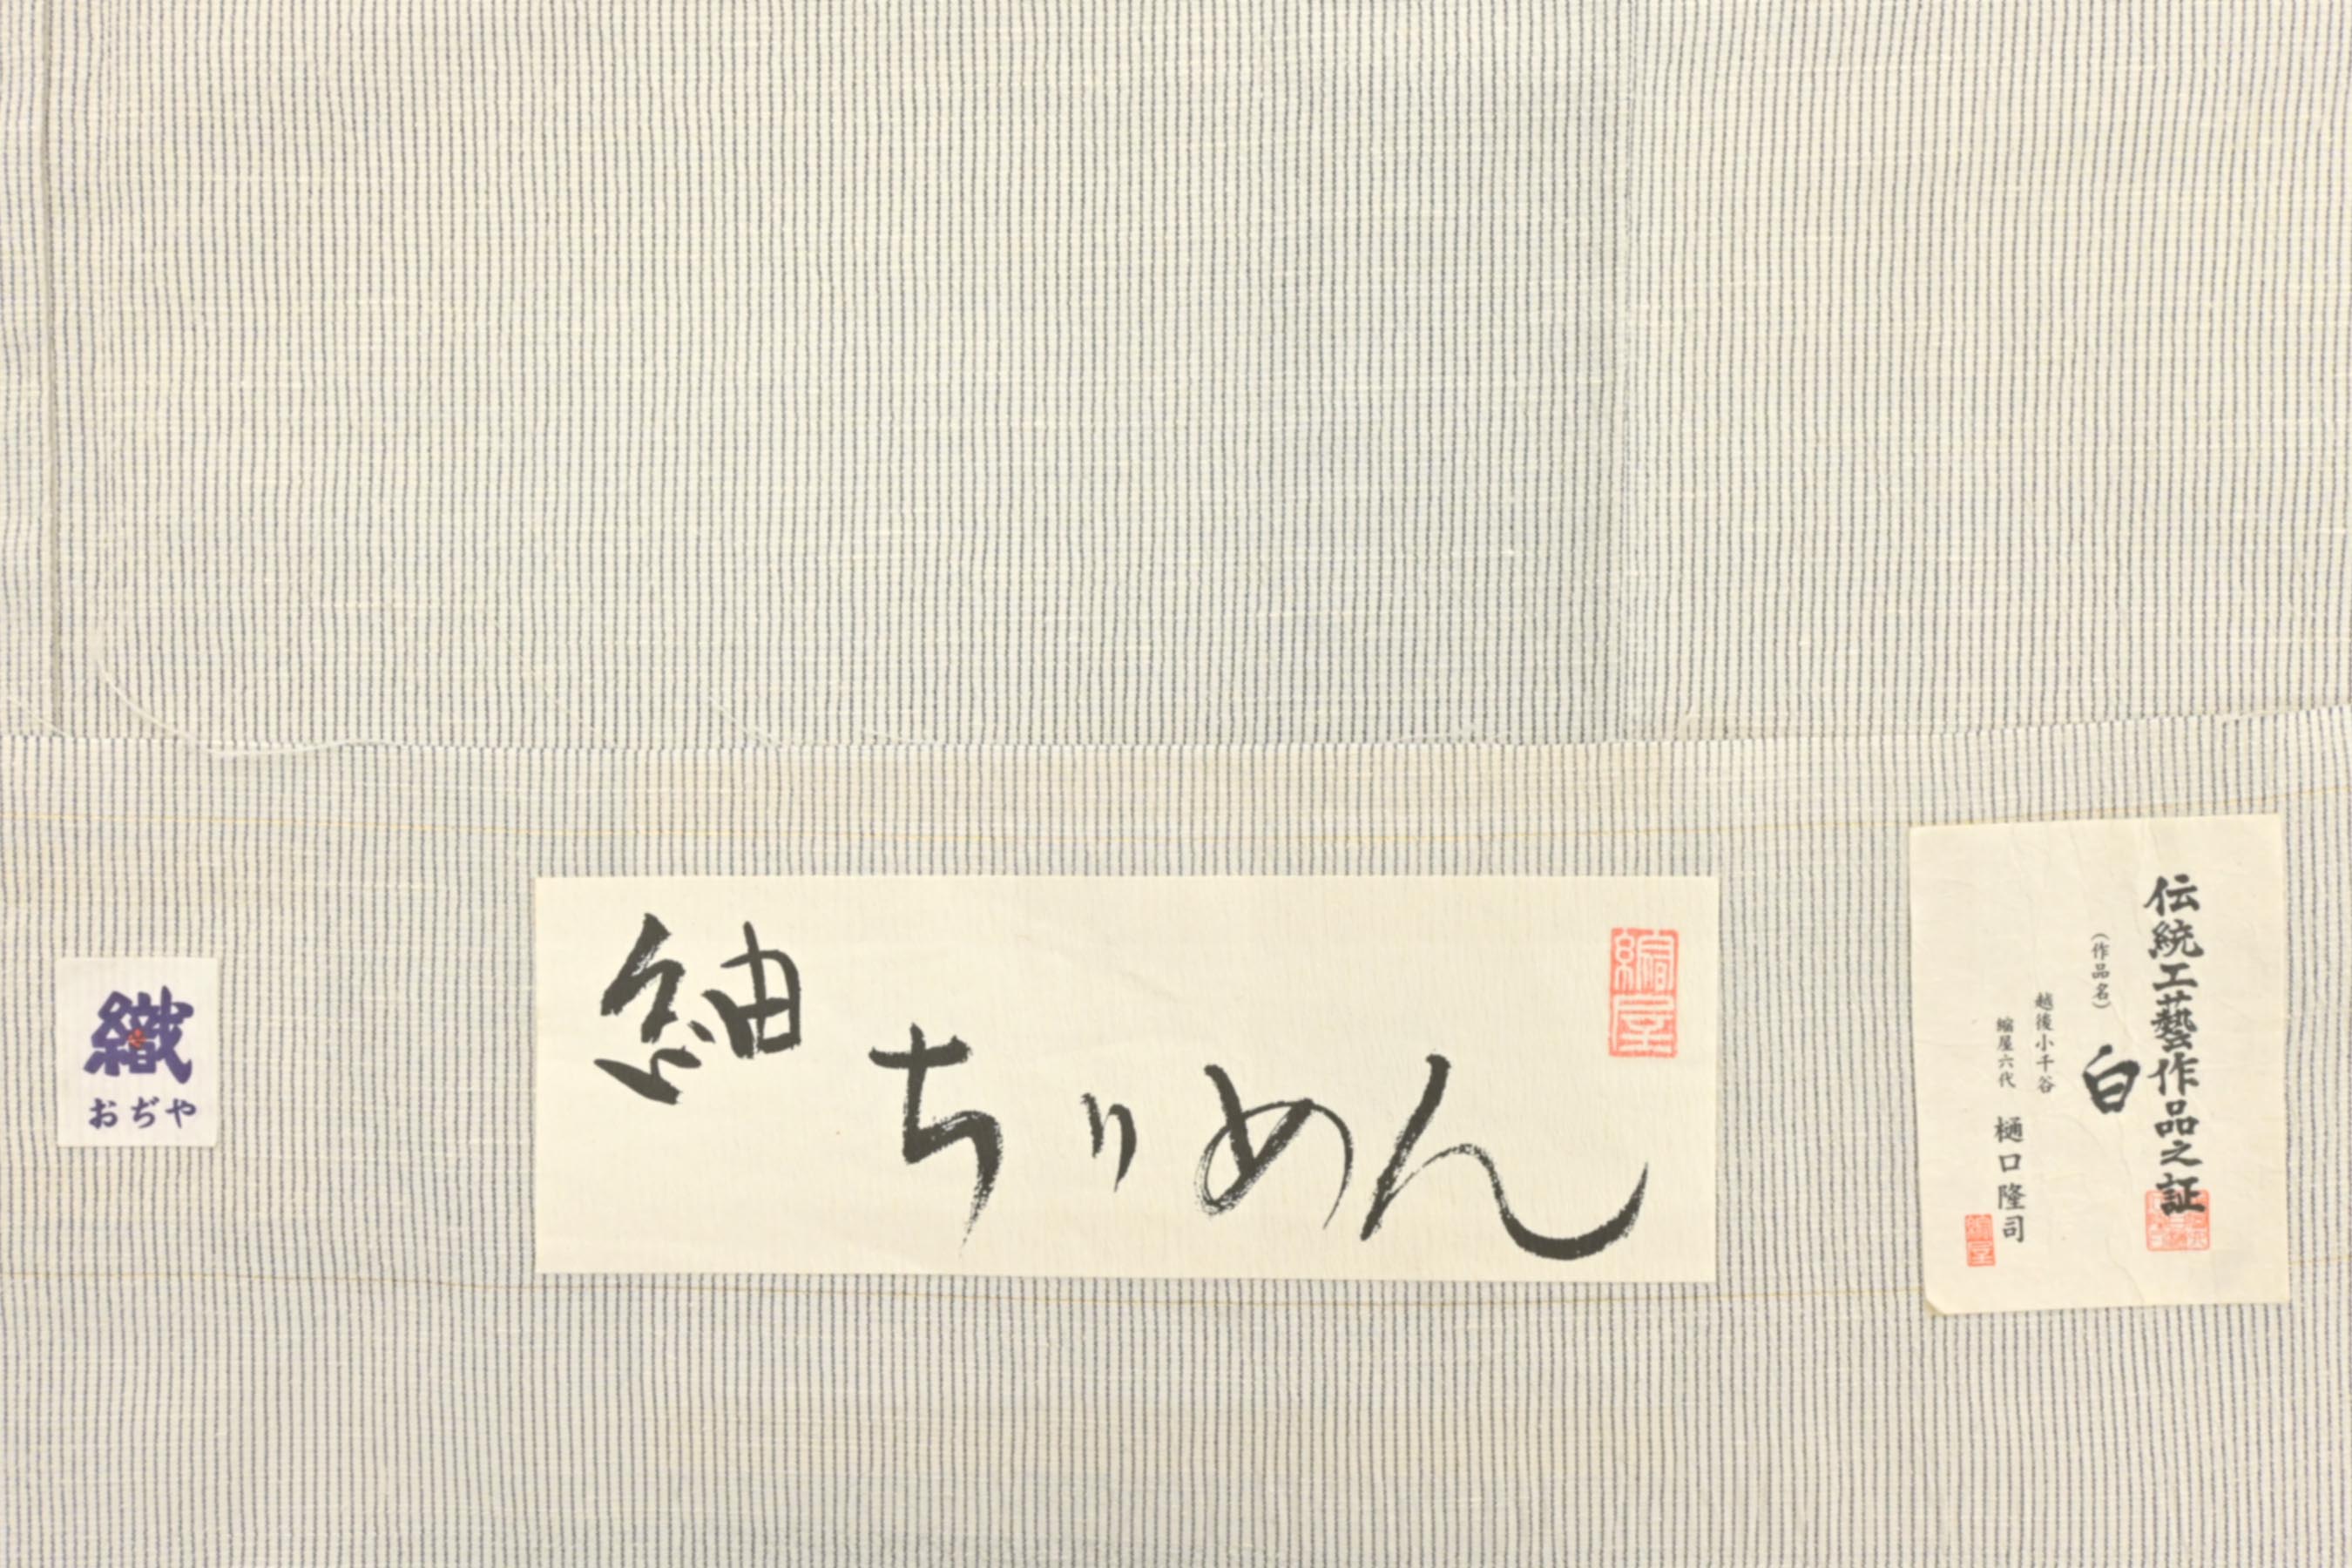 織
おぢや
紬ちりめん
縮屋
伝統工藝作品之証
(作品名) 白
越後小千谷
縮屋六代 樋口隆司